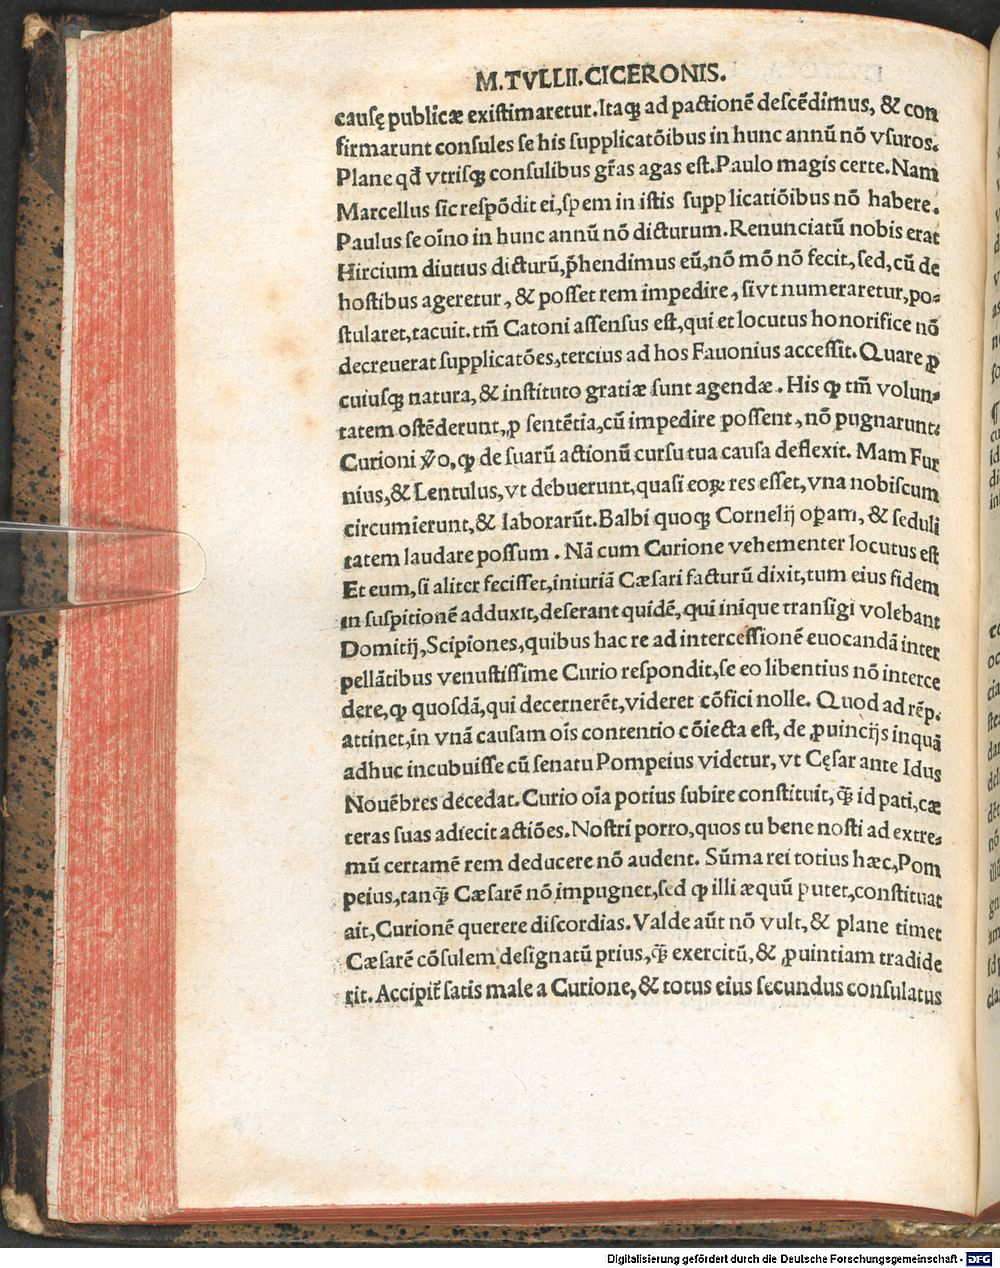 M.TVLLII.CICERONIS.
causę publicæ existimaretur.Itaqꝫ ad pactionē descēdimus, & con
firmarunt consules se his supplicatōibus in hunc annū nō vsuros.
Plane qđ vtrisqꝫ consulibus gr̄as agas est.Paulo magis certe.Nam
Marcellus sic respōdit ei,spem in istis supplicatiōibus nō habere.
Paulus se oīno in hunc annū nō dicturum.Renunciatū nobis erat
Hircium diutius dicturū,p̄hendimus eū,nō mō nō fecit,sed,cū de
hostibus ageretur, & posset rem impedire, si vt numeraretur,po⸗
stularet,tacuit.tm̄ Catoni assensus est,qui et locutus honorifice nō
decreuerat supplicatōes,tercius ad hos Fauonius accessit.Quare ꝓ
cuiusqꝫ natura,& instituto gratiæ sunt agendæ. His ꝙ tm̄ volun⸗
tatem ostēderunt,,ꝓ sentētia,cū impedire possent, nō pugnarunt:
Curioni ṽo,ꝙ de suarū actionū cursu tua causa deflexit. Mam Fur
nius,& Lentulus,vt debuerunt,quasi eoꝝ res esset,vna nobiscum
circumierunt,& laborarūt.Balbi quoqꝫ Cornelij oꝑam, & seduli
tatem laudare possum. Nā cum Curione vehementer locutus est
Et eum,si aliter fecisset,iniuriā Cæsari facturū dixit,tum eius fidem
in suspitionē adduxit,deserant quidē,qui inique transigi volebant
Domitij,Scipiones,quibus hac re ad intercessionē euocandā inter
pellātibus venustissime Curio respondit,se eo libentius nō interce
dere,ꝙ quosdā,qui decernerēt,videret cōfici nolle. Quod ad rēp.
attinet,in vnā causam oīs contentio cōiecta est, de ꝓuincijs inquā
adhuc incubuisse cū senatu Pompeius videtur,vt Cęsar ante Idus
Nouēbres decedat.Curio oīa potius subire constituit,q̄ꝫ id pati,cæ
teras suas adiecit actiōes.Nostri porro,quos tu bene nosti ad extre⸗
mū certamē rem deducere nō audent. Sūma rei totius hæc,Pom
peius,tanq̄ꝫ Cæsarē nō impugnet,sed ꝙ illi æquū putet,constituat
ait,Curionē querere discordias. Valde aūt nō vult, & plane timet
Cæsarē cōsulem designatū prius,q̄ꝫ exercitū,& ꝓuintiam tradide
rit. Accipit̄ satis male a Curione,& totus eius secundus consulatus
Digitalisierung gefördert durch die Deutsche Forschungsgemeinschaft - DFG